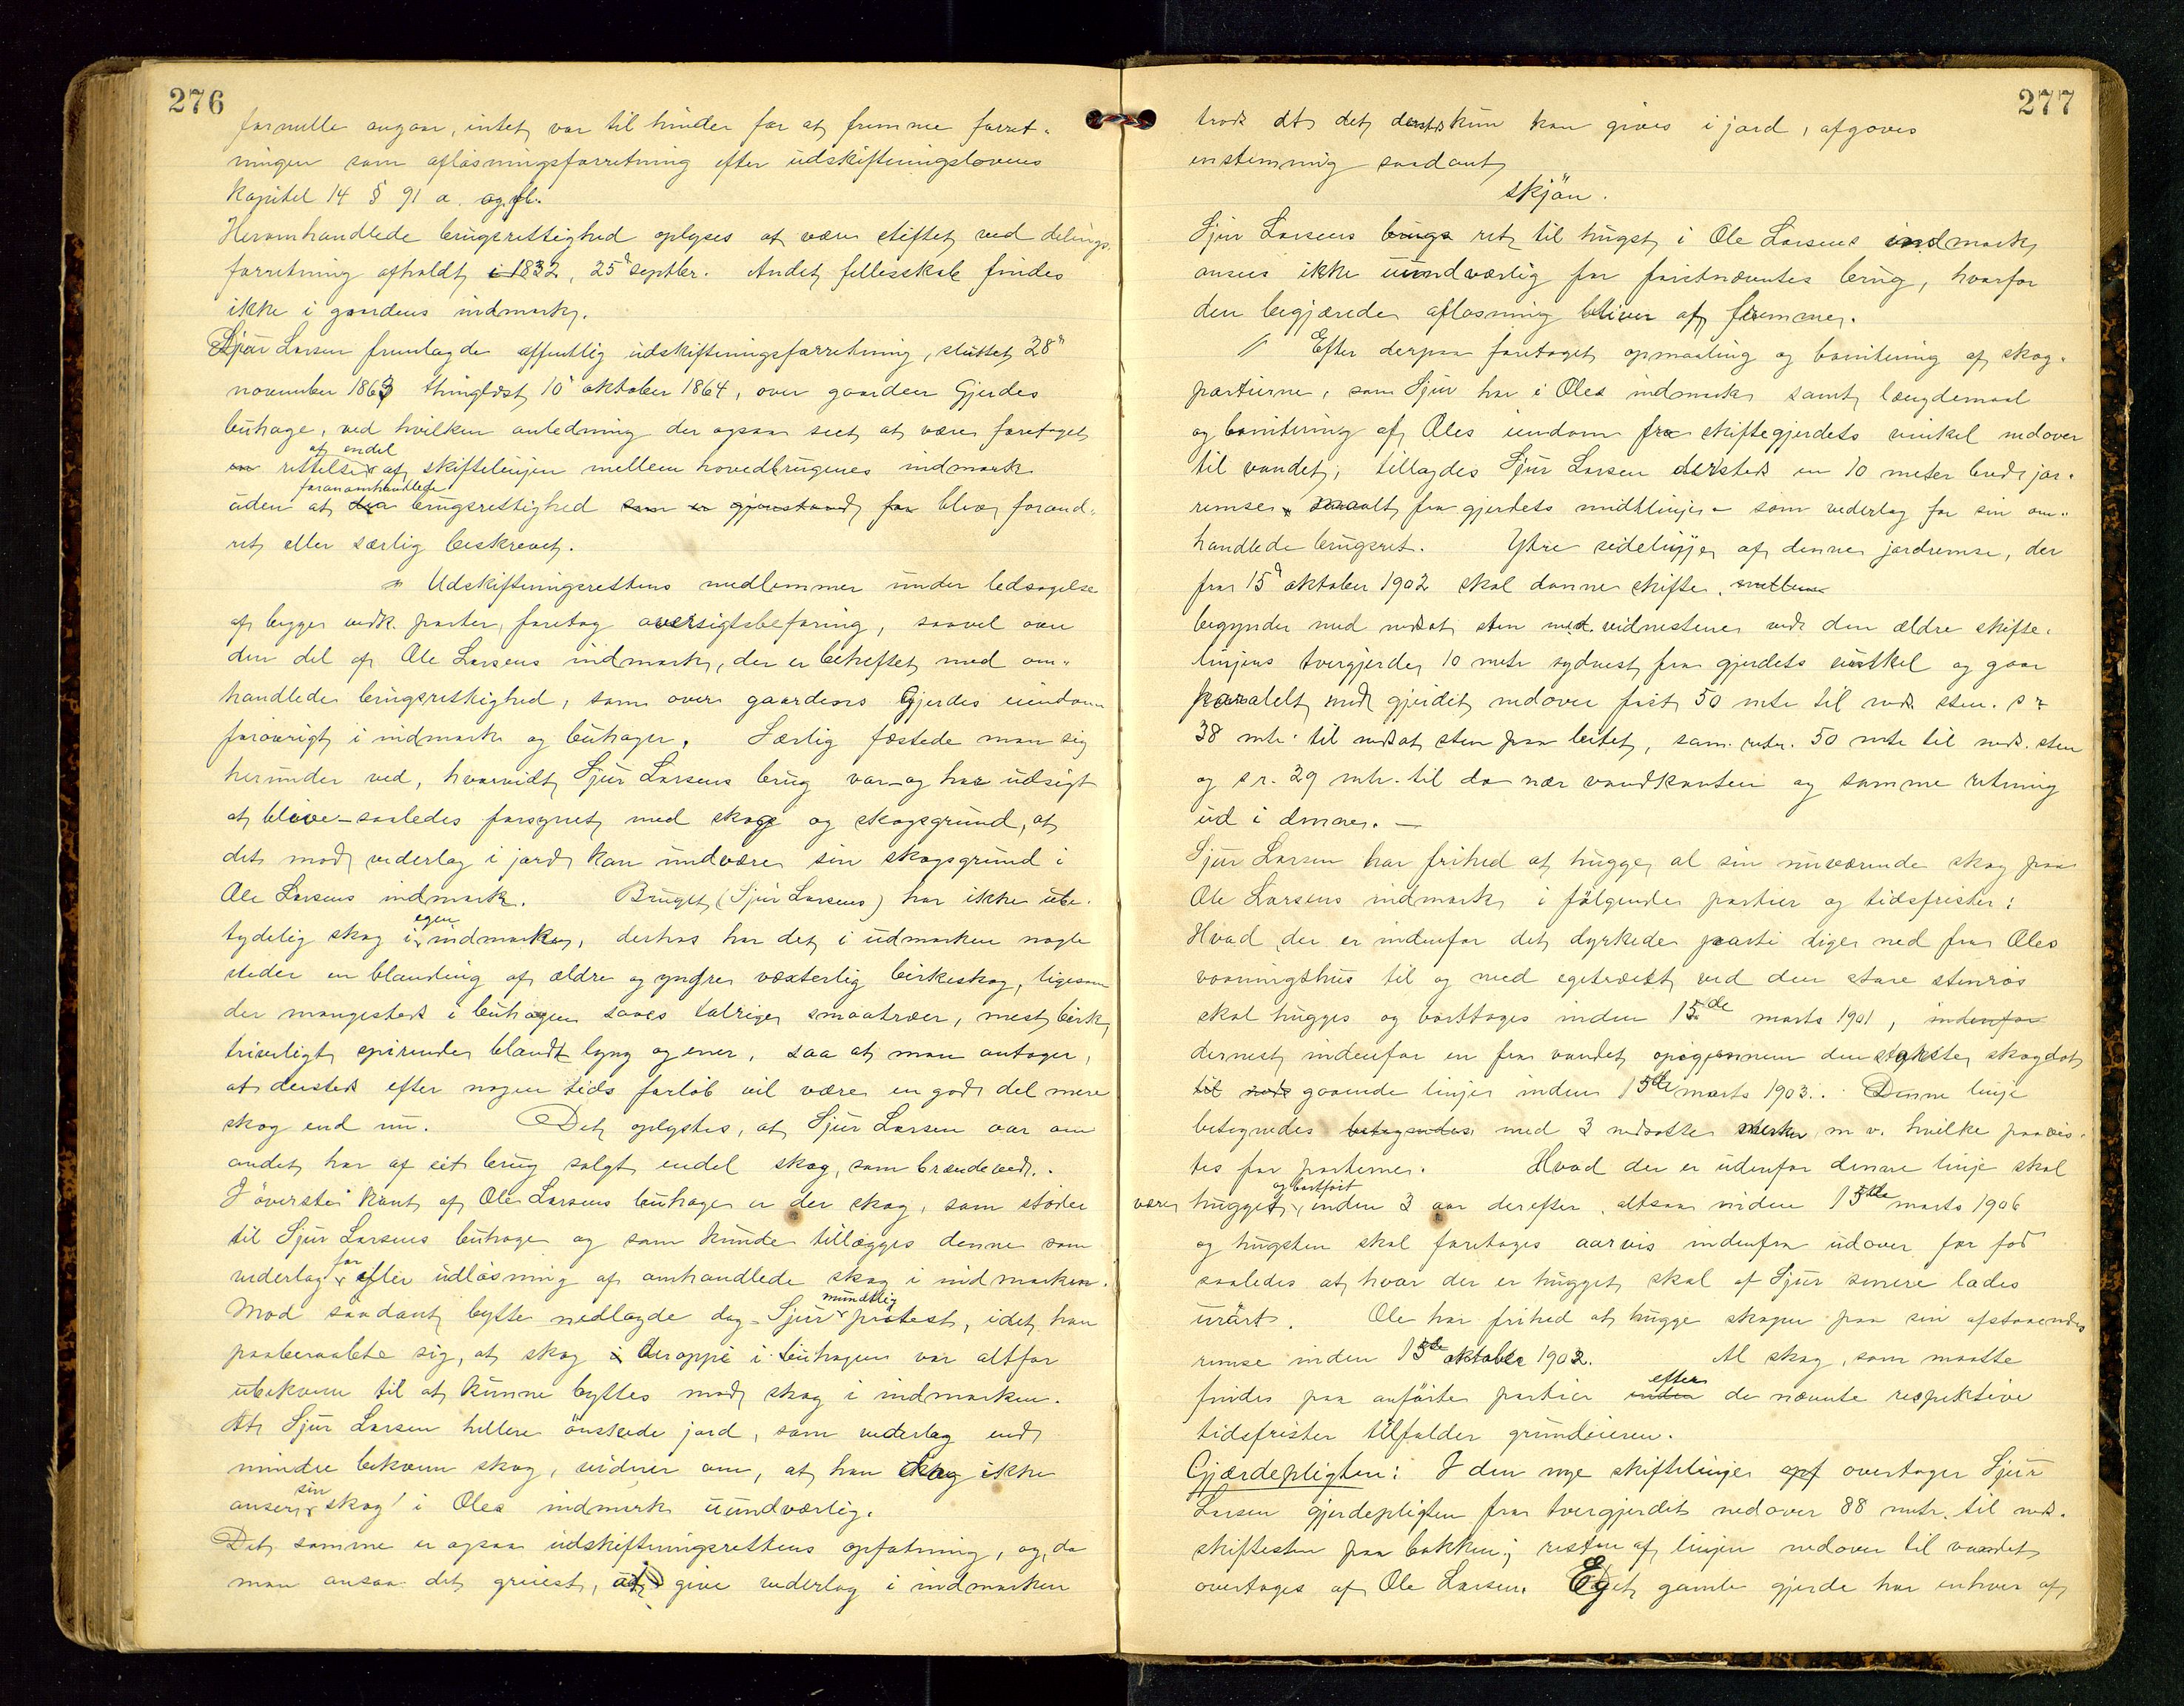 276
formelle angaar, intet var til hinder for at fremme forret-
ningen som aflösningsforretning efter udskiftningslovens
Kapitel 14 § 91 a. og fl.
Heromhandlede brugsrettighed oplyses at være stiftet ved delings-
forretning afholdt i 1832, 25de septbr. Andet fellesskab findes
ikke i gaardens indmark.
Sjur Larsen fremlagde offentlig udskiftningsforretning, sluttet 28de
november 1863 thinglæst 10de oktober 1864, over gaarden Gjerdes
buhage, ved hvilken anledning der ogsaa sees at være foretaget
en af endel rettelser af skiftelinjen mellem hovedbrugenes indmark
uden at den foranomhandlede brugsrettighed som er gjenstand for blev forand-
ret eller særlig beskrevet.
" Udskiftningsrettens medlemmer under ledsagelse
af begge vedk. parter, foretog oversigtsbefaring, saavel over
den del af Ole Larsens indmark, der er beheftet med om-
handlede brugsrettighed, som over gaardens Gjerdes eiendom
forøvrigt i indmark og buhager. Særlig fæstede man sig
herunder ved, hvorvidt Sjur Larsens brug var - og har udsigt
at blive - saaledes forsynet med skog og skogsgrund, at
det mod vederlag i jord kan undvære sin skogsgrund i
Ole Larsens indmark. Bruget (Sjur Larsens) har ikke ube-
tydelig skog i egen indmarken, derhos har det i udmarken nogle
steder en blanding af ældre og yngre væxterlig birkeskog, ligesom
der mangesteds i buhagen saaes talrige smaatræer, mest birk,
triveligt spirende blandt lyng og ener, saa at man antager,
at dersteds efter nogen tids forløb vil være en god del mere
skog end nu. Det oplystes, at Sjur Larsen aar om
andet har af sit brug solgt endel skog, som brændeved.
I överste kant af Ole Larsens buhage er der skog, som støder
til Sjur Larsens buhage og som kunde tillægges denne som
vederlag for efter udlösning af omhandlede skog i indmarken.
Mod saadant bytte nedlagde dog Sjur mundtlig protest, idet han
paaberaabte sig, at skog i deroppe i buhagen var altfor
ubekvem til at kunne byttes mod skog i indmarken.
At Sjur Larsen hellere önskede jord, som vederlag end
mindre bekvem skog, vidner om, at han skog ikke
anser sin skog i Oles indmark uundværlig.
Det samme er ogsaa udskiftningsrettens opfatning, og, da
man ansaa det greiest, at give vederlag i indmarken
277
trods at det dersteds kun kan gives i jord, afgaves
enstemmig saadant
skjön.
Sjur Larsens brugs ret til hugst i Ole Larsens indmark
ansees ikke uundværlig for førstnævntes brug, hvorfor
den begjærede aflosning bliver at fremme.
" Efter derpaa foretaget opmaaling og bonitering af skog-
partierne, som Sjur har i Oles indmark samt længdemaal
og bonitering af Oles eiendom fra skiftegjerdets vinkel nedover
til vandet, tillagdes Sjur Larsen dersteds en 10 meter bred jor-
remse, maalt fra gjerdets midtlinje - som vederlag for sin om-
handlede brugsret. Ytre sidelinje af denne jordremse, der
fra 15de oktober 1902 skal danne skifte, mellem
begynder med nedsat sten med vidnestene ved den ældre skifte-
linjens tvergjerde, 10 mtr sydvest fra gjerdets vinkel og gaar
paralelt med gjerdet nedover først 50 mtr til neds. sten. s r
38 mtr. til nedsat sten paa leitet, sam. retn. 50 mtr til neds. sten
og s r. 29 mtr. til do nær vandkanten og samme retning
ud i denne. —
Sjur Larsen har frihed at hugge al sin nuværende skog paa
Ole Larsens indmark i fölgende partier og tidsfrister:
Hvad der er indenfor det dyrkede parti lige ned fra Oles
vaaningshus til og med egetræet ved den store stenrøs
skal hugges og borttages inden 15de marts 1901, indenfor
dernest indenfor en fra vandet opigjennem den største skogdot
til neds gaaende linje inden 15de marts 1903. Denne linje
betegnedes betegnedes med 3 nedsatte merker m v. hvilke paavis-
tes for parterne. Hvad der er udenfor denne linje skal
være hugget og bortført, inden 3 aar derefter, altsaa inden 15de marts 1906
og hugsten skal foretages aarvis indenfra udover for fod
saaledes at, hvor der er hugget, skal af Sjur senere lades
urört. Ole har frihed at hugge skogen paa sin afstaaende
remse inden 15de oktober 1902. Al skog, som maatte
findes paa anförte partier inden efter de nævnte respektive
tidsfrister tilfalder grundeieren.
Gjærdepligten: I den nye skiftelinje opf overtager Sjur
Larsen gjerdepligten fra tvergjerdet nedover 88 mtr. til neds.
skiftesten paa bakken; resten af linjen nedover til vandet
overtages af Ole Larsen. Det gamle gjerde har enhver af